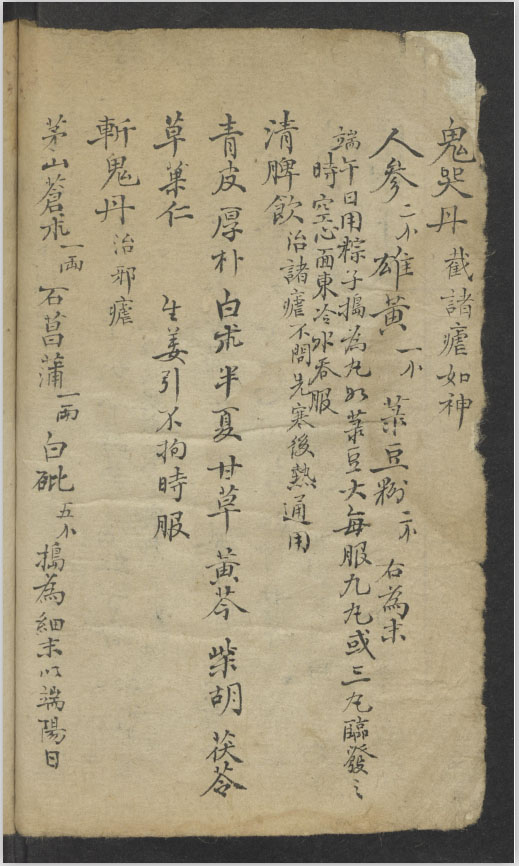 鬼哭丹 截諸瘧如神
人參二小 雄黃一小 菉豆粉二小 右為末
端午日用粽子搗為丸如菉豆大每服九丸或三丸臨發之
時空心面東冷水吞服
清脾飲 治諸瘧不問先寒後熱通用
青皮 厚朴 白朮 半夏 甘草 黃芩 柴胡 茯苓
草菓仁 生姜引不拘時服
斬鬼丹 治邪瘧
茅山蒼朮一両 石菖蒲一両 白砒五小 搗為細末以端陽日